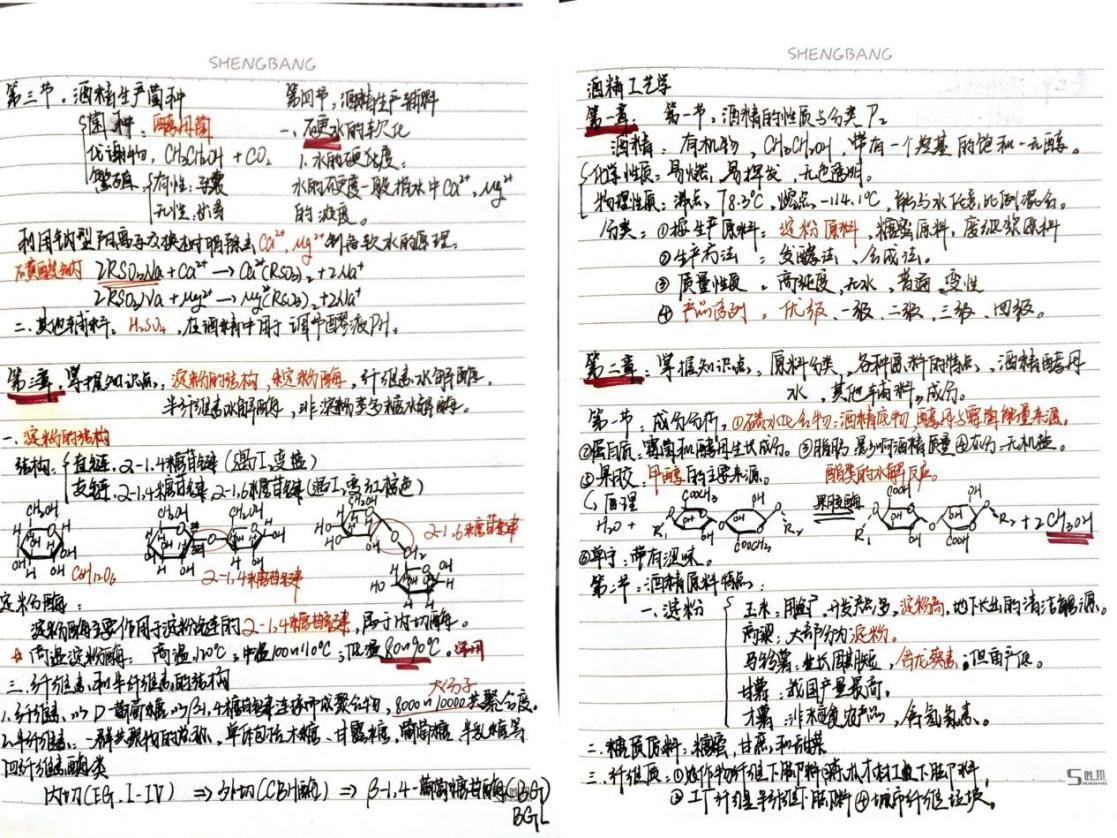 SHENGBANG
第三节，酒精生产菌种
菌种：酵母菌
代谢物，CH₃CH₂OH + CO₂
有性：
无性：
第四节，酒精生产辅料
一、硬水的软化
1.水的硬度：
水的硬度一般指水中Ca²⁺，Mg²⁺
的浓度。
利用钠型阳离子交换树脂除去Ca²⁺，Mg²⁺制备软水的原理。
2RSO₃Na + Ca²⁺ → Ca²⁺(RSO₃)₂ + 2Na⁺
2RSO₃Na + Mg²⁺ → Mg²⁺(RSO₃)₂ + 2Na⁺
二、其他辅料。H₂SO₄，在酒精中用于调节醪液PH。
第三章，掌握知识点，淀粉的结构，淀粉酶，纤维素水解酶，
半纤维素水解酶，非淀粉多糖水解酶。
一、淀粉的结构
结构：直链，2-1.4糖苷键（遇I₂变蓝）
支链，2-1.4糖苷键，2-1.6糖苷键（遇I₂紫红褐色）
CH₂OH CH₂OH CH₂OH CH₂OH
2-1.6糖苷键
C₆H₁₂O₆
2-1.4糖苷键
淀粉酶：
淀粉酶主要作用于淀粉的2-1.4糖苷键，属于内切酶。
高温淀粉酶：高温，110℃；中温100~110℃；低温80~90℃。常用
三、纤维素和半纤维素的结构
大分子
1.纤维素，以D-葡萄糖以β-1,4糖苷键连接而成聚合物，8000~10000聚合度。
2.半纤维素：一群共聚物的总称，单体包括木糖、甘露糖，葡萄糖、半乳糖等
四纤维素酶类
内切(EG. I-IV) ⇒ 外切(CBH酶) ⇒ β-1,4-葡萄糖苷酶(BG)
BGL
SHENGBANG
酒精工艺学
第一章：第一节：酒精的性质与分类 P₂
酒精：有机物，CH₃CH₂OH，带有一个羟基的饱和一元醇。
化学性质：易燃，易挥发，无色透明。
物理性质：沸点，78.3℃，熔点-114.1℃，能与水任意比例混合。
分类：①按生产原料：淀粉原料，糖蜜原料，废纸浆原料
②生产方法：发酵法、合成法。
③质量性质：高纯度，无水，普通，变性
④产品系列，优级，一级，二级，三级，四级。
第二章：掌握知识点，原料分类，各种原料的特点，酒精酵母
水，其他辅料，成分。
第一节，成分分析，①碳水化合物：酒精底物，酵母与霉菌能量来源，
②蛋白质：霉菌和酵母生长成分。③脂肪 影响酒精质量④灰分-无机盐。
⑤果胶，甲醇的主要来源。 酯类的水解反应。
原理
H₂O + R₁ COOCH₃ OH OH COOCH₃ R₂ 果胶酶 R₁ COOH OH OH COOH R₂ + 2CH₃OH
⑥单宁：带有涩味。
第二节：酒精原料特点：
一、淀粉
玉米：用途广，开发产品多，淀粉高，地下长出的清洁能源。
高粱：大部分为淀粉。
马铃薯：生长周期短，含龙葵素，但亩产低。
甘薯：我国产量最高。
木薯：非粮食农产品，含氢氰素。
二、糖质原料：糖蜜，甘蔗和甜菜
三、纤维质：①农作物纤维下脚料②森林木材加工下脚料，
③工厂纤维半纤维下脚料④城市纤维垃圾。
SHENGBANG